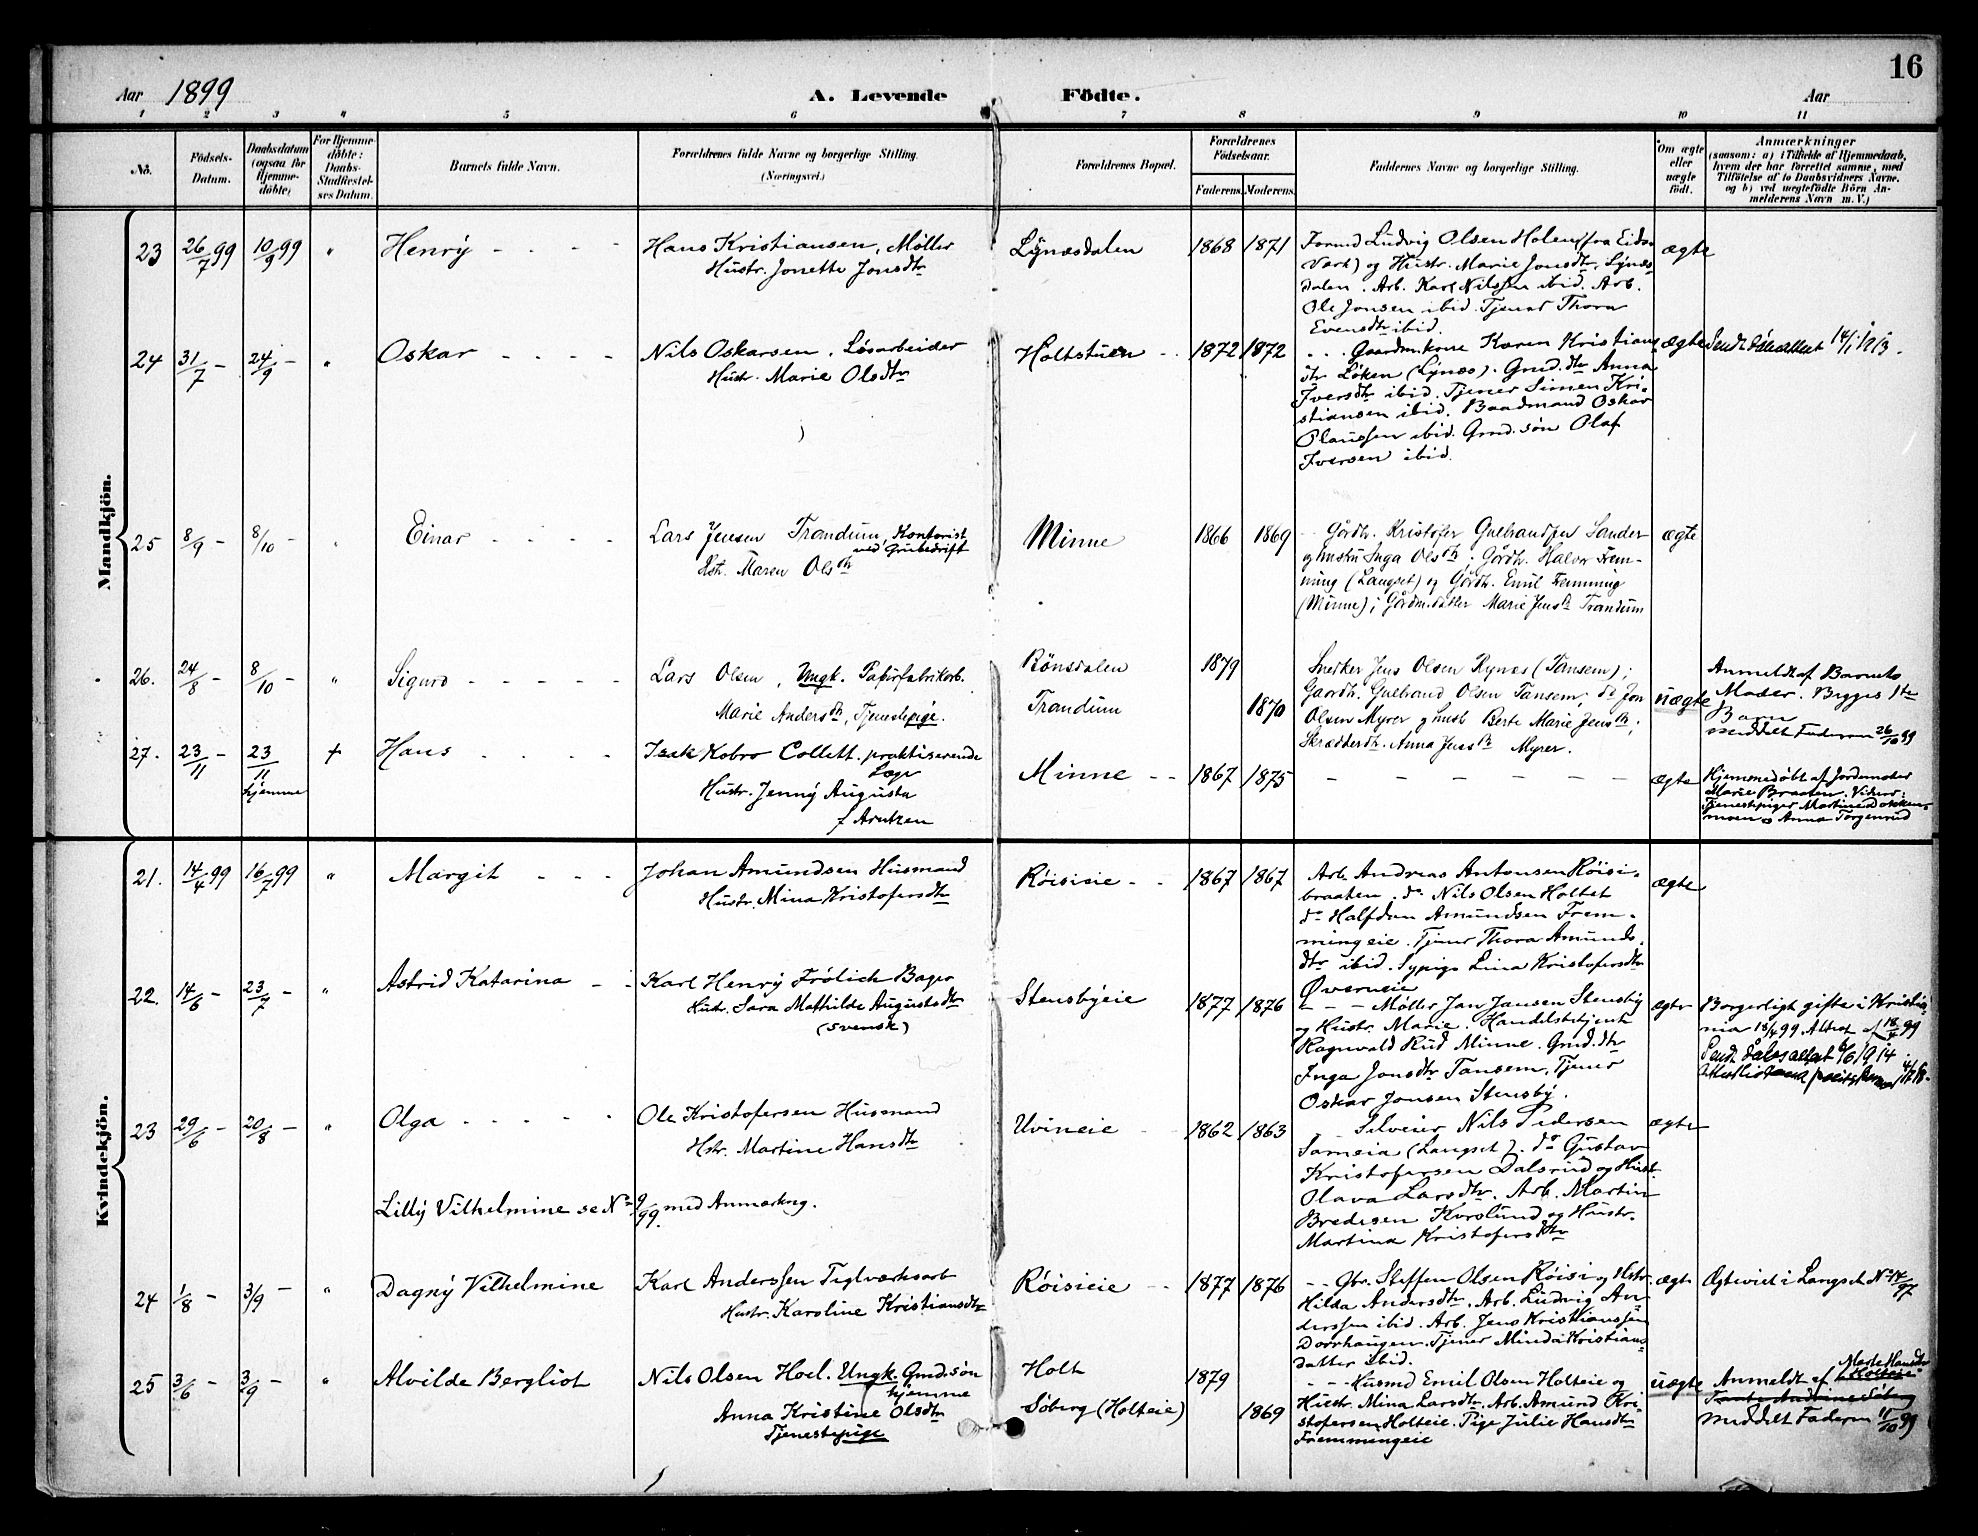 16
Aar 1899
A. Levende Födte.
Aar
1 2 3 4 5 6 7 8 9 10 11
No.
Födsels-Datum.
Daabsdatum (ogsaa for Hjemme-döbte)
For Hjemme-döbte: Daabs-Stadfæstel-ses Datum.
Barnets fulde Navn.
Forældrenes fulde Navne og borgerlige Stilling.
(Næringsvei.)
Forældrenes Bopæl.
Forældrenes Födselsaar.
Faderens. Moderens.
Faddernes Navne og borgerlige Stilling.
Om ægte eller uægte födt.
Anmærkninger
(saasom: a) i Tilfælde af Hjemmedaab,
hvem der har forrettet samme, med
Tilföielse af to Daabsvidners Navne.
og b) ved uægtefödte Börn An-
melderens Navn m. V.)
Mandkjön.
23 26/7 99 10/9 99 " Henrÿ - - - -
Hans Kristiansen, Møller
Hustr. Jonette Jonsdtr
Lÿnæsdalen
1868 1871
Formd Ludvig Olsen Holen (fra Eids
Værk) og Hustr. Marie Jonsdtr, Lÿnæs-
dalen. Arb. Karl Nilssen ibid. Arb.
Ole Jonsen ibid. Tjener Thora
Evensdtr ibid.
ægte
24 31/7 - 24/9 - " Oskar - - - -
Nils Oskarsen, Løsarbeider
Hustr. Marie Olsdtr
Holtstuen - -
1872 1872
- - Gaardm.kone Karen Kristians
dtr Løken (Lÿnæs). Gmd. dtr Anna
Iversdtr ibid. Tjener Simen Kri-
stiansen ibid. Baadmand Oskar
Olaussen ibid. Gmd. søn Olaf
Iversen ibid.
ægte
Sendt dåbsattest 14/1 1913.
25 8/9 8/10 - " Einar - - - -
Lars Jensen Trandum, Kontorist
ved Grubedrift
Hst. Maren Olsdtr
Minne
1866 1869
Gårdbr. Kristofer Gulbrandsen Sander
og hustru Inga Olsdtr; Gårdbr. Halvor Frem-
ming (Langset) og Gårdbr. Emil Fremming
(Minne); Gårdm.datter Marie Jensdtr Trandum
ægte
26. 24/8 - 8/10 - " Sigurd - - - - -
Lars Olsen, Ungk. Papirfabrikarb.
Marie Andersdtr, Tjenestepige.
Rönsdalen
Trandum
1879
1870
Snedker Jens Olsen Rynæs (Tansem);
Gaardbr. Gulbrand Olsen Tansem, do Jon
Olsen Myrer og hust Berte Marie Jensdtr;
Skrædderdtr. Anna Jensdtr Myrer.
uægte
Anmeldt af Barnets
Moder. Begges 1ste
Barn
meddelt Faderen 26/10 99
27. 23/11 - 23/11 hjemme + Hans - - - -
Isak Kobro Collett. praktiserende
Læge
Hustr. Jennÿ Augusta
f Arntzen
Minne - -
1867 1875
- - - - - - -
ægte
Hjemmedøbt af Jordemoder
Marie Braaten. Vidner:
Tjenestepiger Martine Dokken-
moen og Anna Torgenrud
Kvindekjön.
21. 14/4 99 16/7 99 " Margit - - -
Johan Amundsen Husmand
Hustr. Mina Kristofersdtr
Røisieie - -
1867 1867
Arb. Andreas Antonsen Røisi-
braaten. do Nils Olsen Holtet
do Halfdan Amundsen Frem-
mingeie. Tjener Thora Amunds-
dtr ibid. Sypige Lina Kristofersdtr
Øverneie
ægte
22. 14/6 - 23/7 - " Astrid Katarina - -
Karl Henrÿ Frölich Bager
Hustr. Sara Mathilde Augustsdtr
(svensk)
Stensbÿeie
1877 1876
- - - Møller Jan Jansen Stensbÿ
og Hustr. Marie. Handelsbetjent
Ragnvald Rud Minne. Gmd. dtr
Inga Jonsdtr Tansem, Tjener
Oskar Jonsen Stensbÿ.
ægte
Borgerligt gifte i Kristia-
nia 18/4 99 Attest af 18/4 99
Sendt dåbsattest 6/6 1914
23 29/6 - 20/8 - " Olga - - - -
Ole Kristofersen Husmand
Hstr. Martine Hansdtr
Uvineie
1862 1863
Selveier Nils Pedersen
Sameia (Langset). do Gustav
Kristofersen Dalsrud og Hust.
Olava Larsdtr. Arb. Martin
Bredesen Karslund og Hustr.
Martina Kristofersdtr
ægte
Lillÿ Vilhelmine se No 9/99 med Anmærkng.
24 1/8 - 3/9 - " Dagnÿ Vilhelmine
Karl Anderssen Teglværksarb
Hustr. Karoline Kristiansdtr
Røisieie - -
1877 1876
- - Gbr. Steffen Olsen Røisi og Hstr.
Hilda Andersdtr, Arb. Ludvig An-
derssen ibid. Arb. Jens Kristianssen
Dorrhaugen. Tjener Minda Kristians-
datter ibid.
ægte
Ægteviet i Langset No 14/97
25 3/6 - 3/9 - " Alvilde Bergliot
Nils Olsen Hoel. Ungk. Gmd. søn
hjemme
Anna Kristine Olsdtr
Tjenestepige
Holt
Søberg (Holteie)
1879
1869
- - - Husmd Emil Olsen Holteie og
Hustr. Mina Larsdtr. Arb. Amund Kri-
stofersen Holteie. Pige Julie Hansdtr
Fremmingeie
uægte
Anmeldt af Marte Hansdtr
Holteie
meddelt Faderen 11/10 99